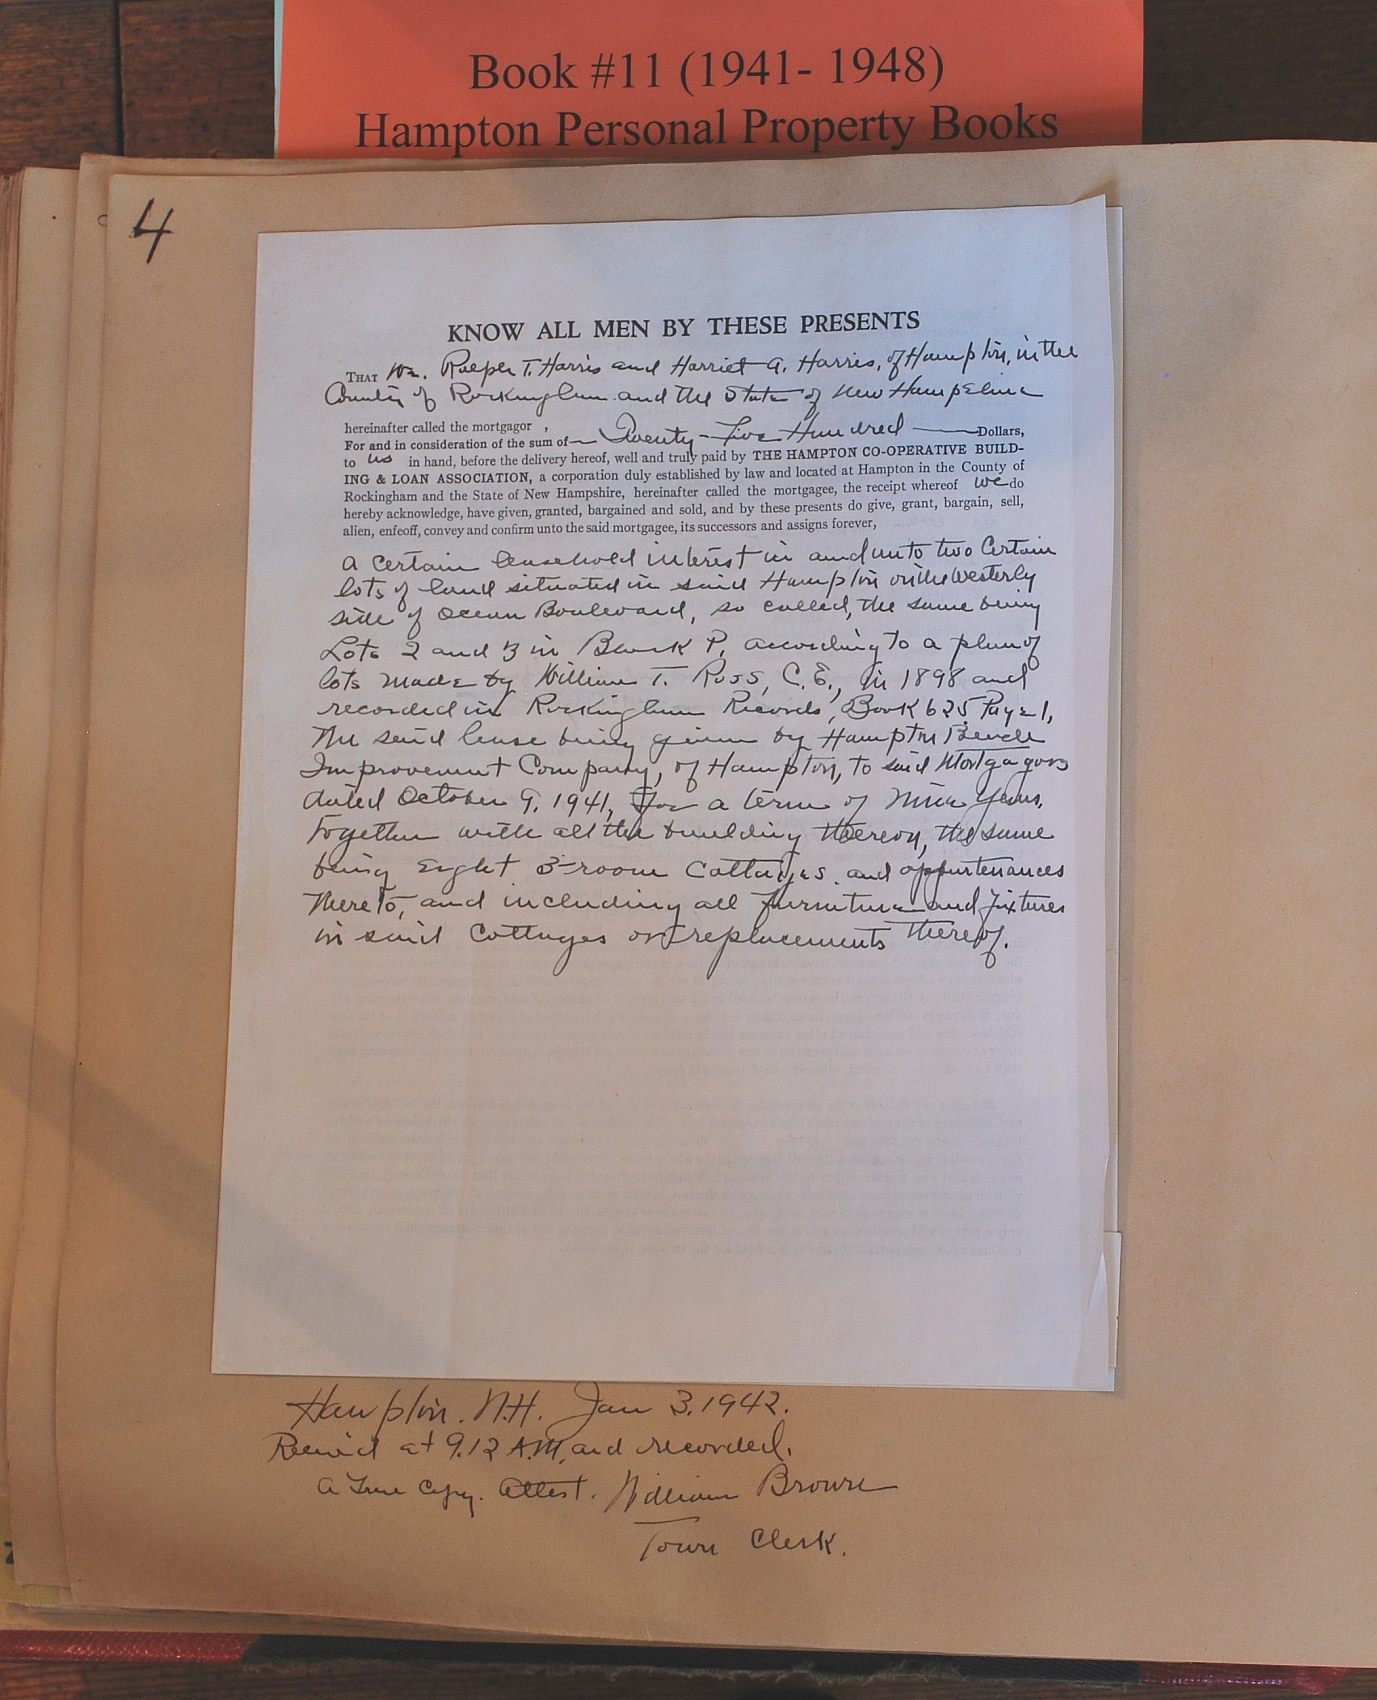 Book #11 (1941- 1948)
Hampton Personal Property Books
4
KNOW ALL MEN BY THESE PRESENTS
THAT We, Ralph T. Harris and Harriet A. Harris, of Hampton, in the
County of Rockingham and the State of New Hampshire
hereinafter called the mortgagor ,
For and in consideration of the sum of Twenty-Five Hundred Dollars,
to us in hand, before the delivery hereof, well and truly paid by THE HAMPTON CO-OPERATIVE BUILD-
ING & LOAN ASSOCIATION, a corporation duly established by law and located at Hampton in the County of
Rockingham and the State of New Hampshire, hereinafter called the mortgagee, the receipt whereof we do
hereby acknowledge, have given, granted, bargained and sold, and by these presents do give, grant, bargain, sell,
alien, enfeoff, convey and confirm unto the said mortgagee, its successors and assigns forever,
a certain leasehold interest in and unto two certain
lots of land situated in said Hampton on the Westerly
side of Ocean Boulevard, so called, the same being
Lots 2 and 3 in Block P, according to a plan of
lots made by William T. Ross, C.E., in 1898 and
recorded in Rockingham Records, Book 625, Page 1,
The said lease being given by Hampton Beach
Improvement Company, of Hampton, to said Mortgagors
dated October 9, 1941, for a term of nine years.
Together with all the building thereon, the same
being Eight 3-room Cottages and appurtenances
thereto, and including all furniture and fixtures
in said cottages or replacements thereof.
Hampton. N.H. Jan 3. 1942.
Received at 9.12 A.M. and recorded.
A True Copy. Attest. William Brown
Town Clerk.